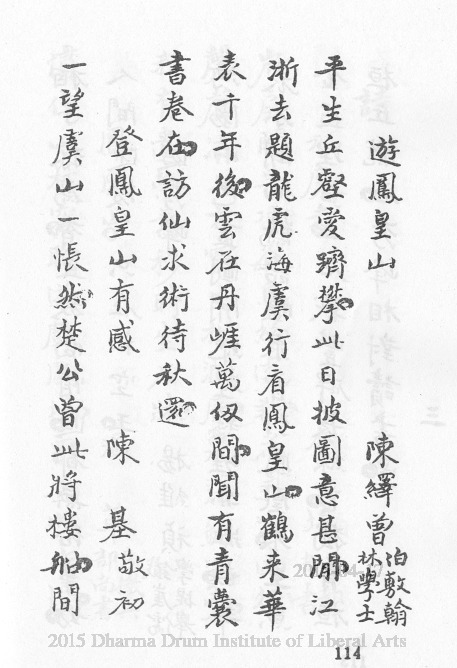 遊鳳皇山 陳繹曾 泊敷翰林學士
平生丘壑愛躋攀此日披圖意甚閒江
浙去題龍虎海虞行看鳳皇山鶴来華
表千年後雲在丹崕萬仭間聞有青囊
書卷在訪仙求術待秋還
登鳳皇山有感 陳 基敬初
一望虞山一悵然楚公曾此將樓舡間
2015 Dharma Drum Institute of Liberal Arts
114